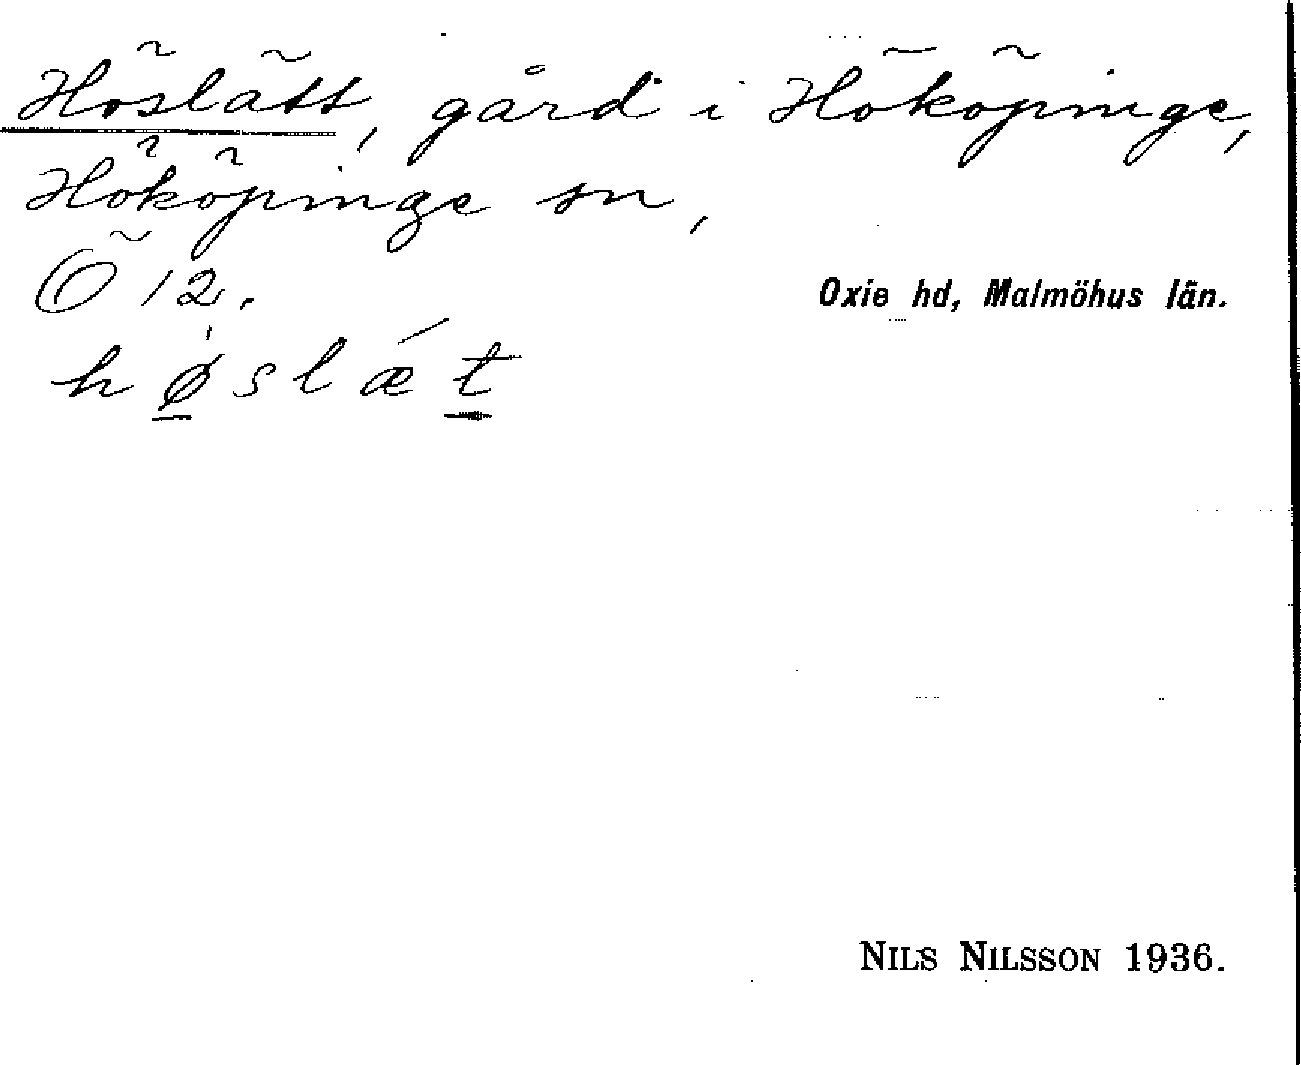 Höslätt, gård i Hököpinge,
Hököpinge sn,
Ö 12.
Oxie hd, Malmöhus län.
hø̠slǽt̠
NILS NILSSON 1936.